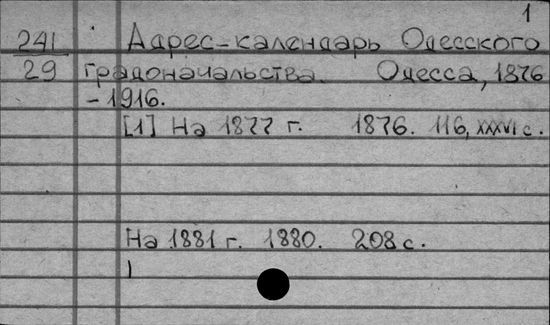 1
241 Адрес-календарь Одесского
29 градоначальства. Одесса, 1876
- 1916.
[1] На 1877 г. 1876. 116, XXXVI с.
На 1881 г. 1880. 208 с.